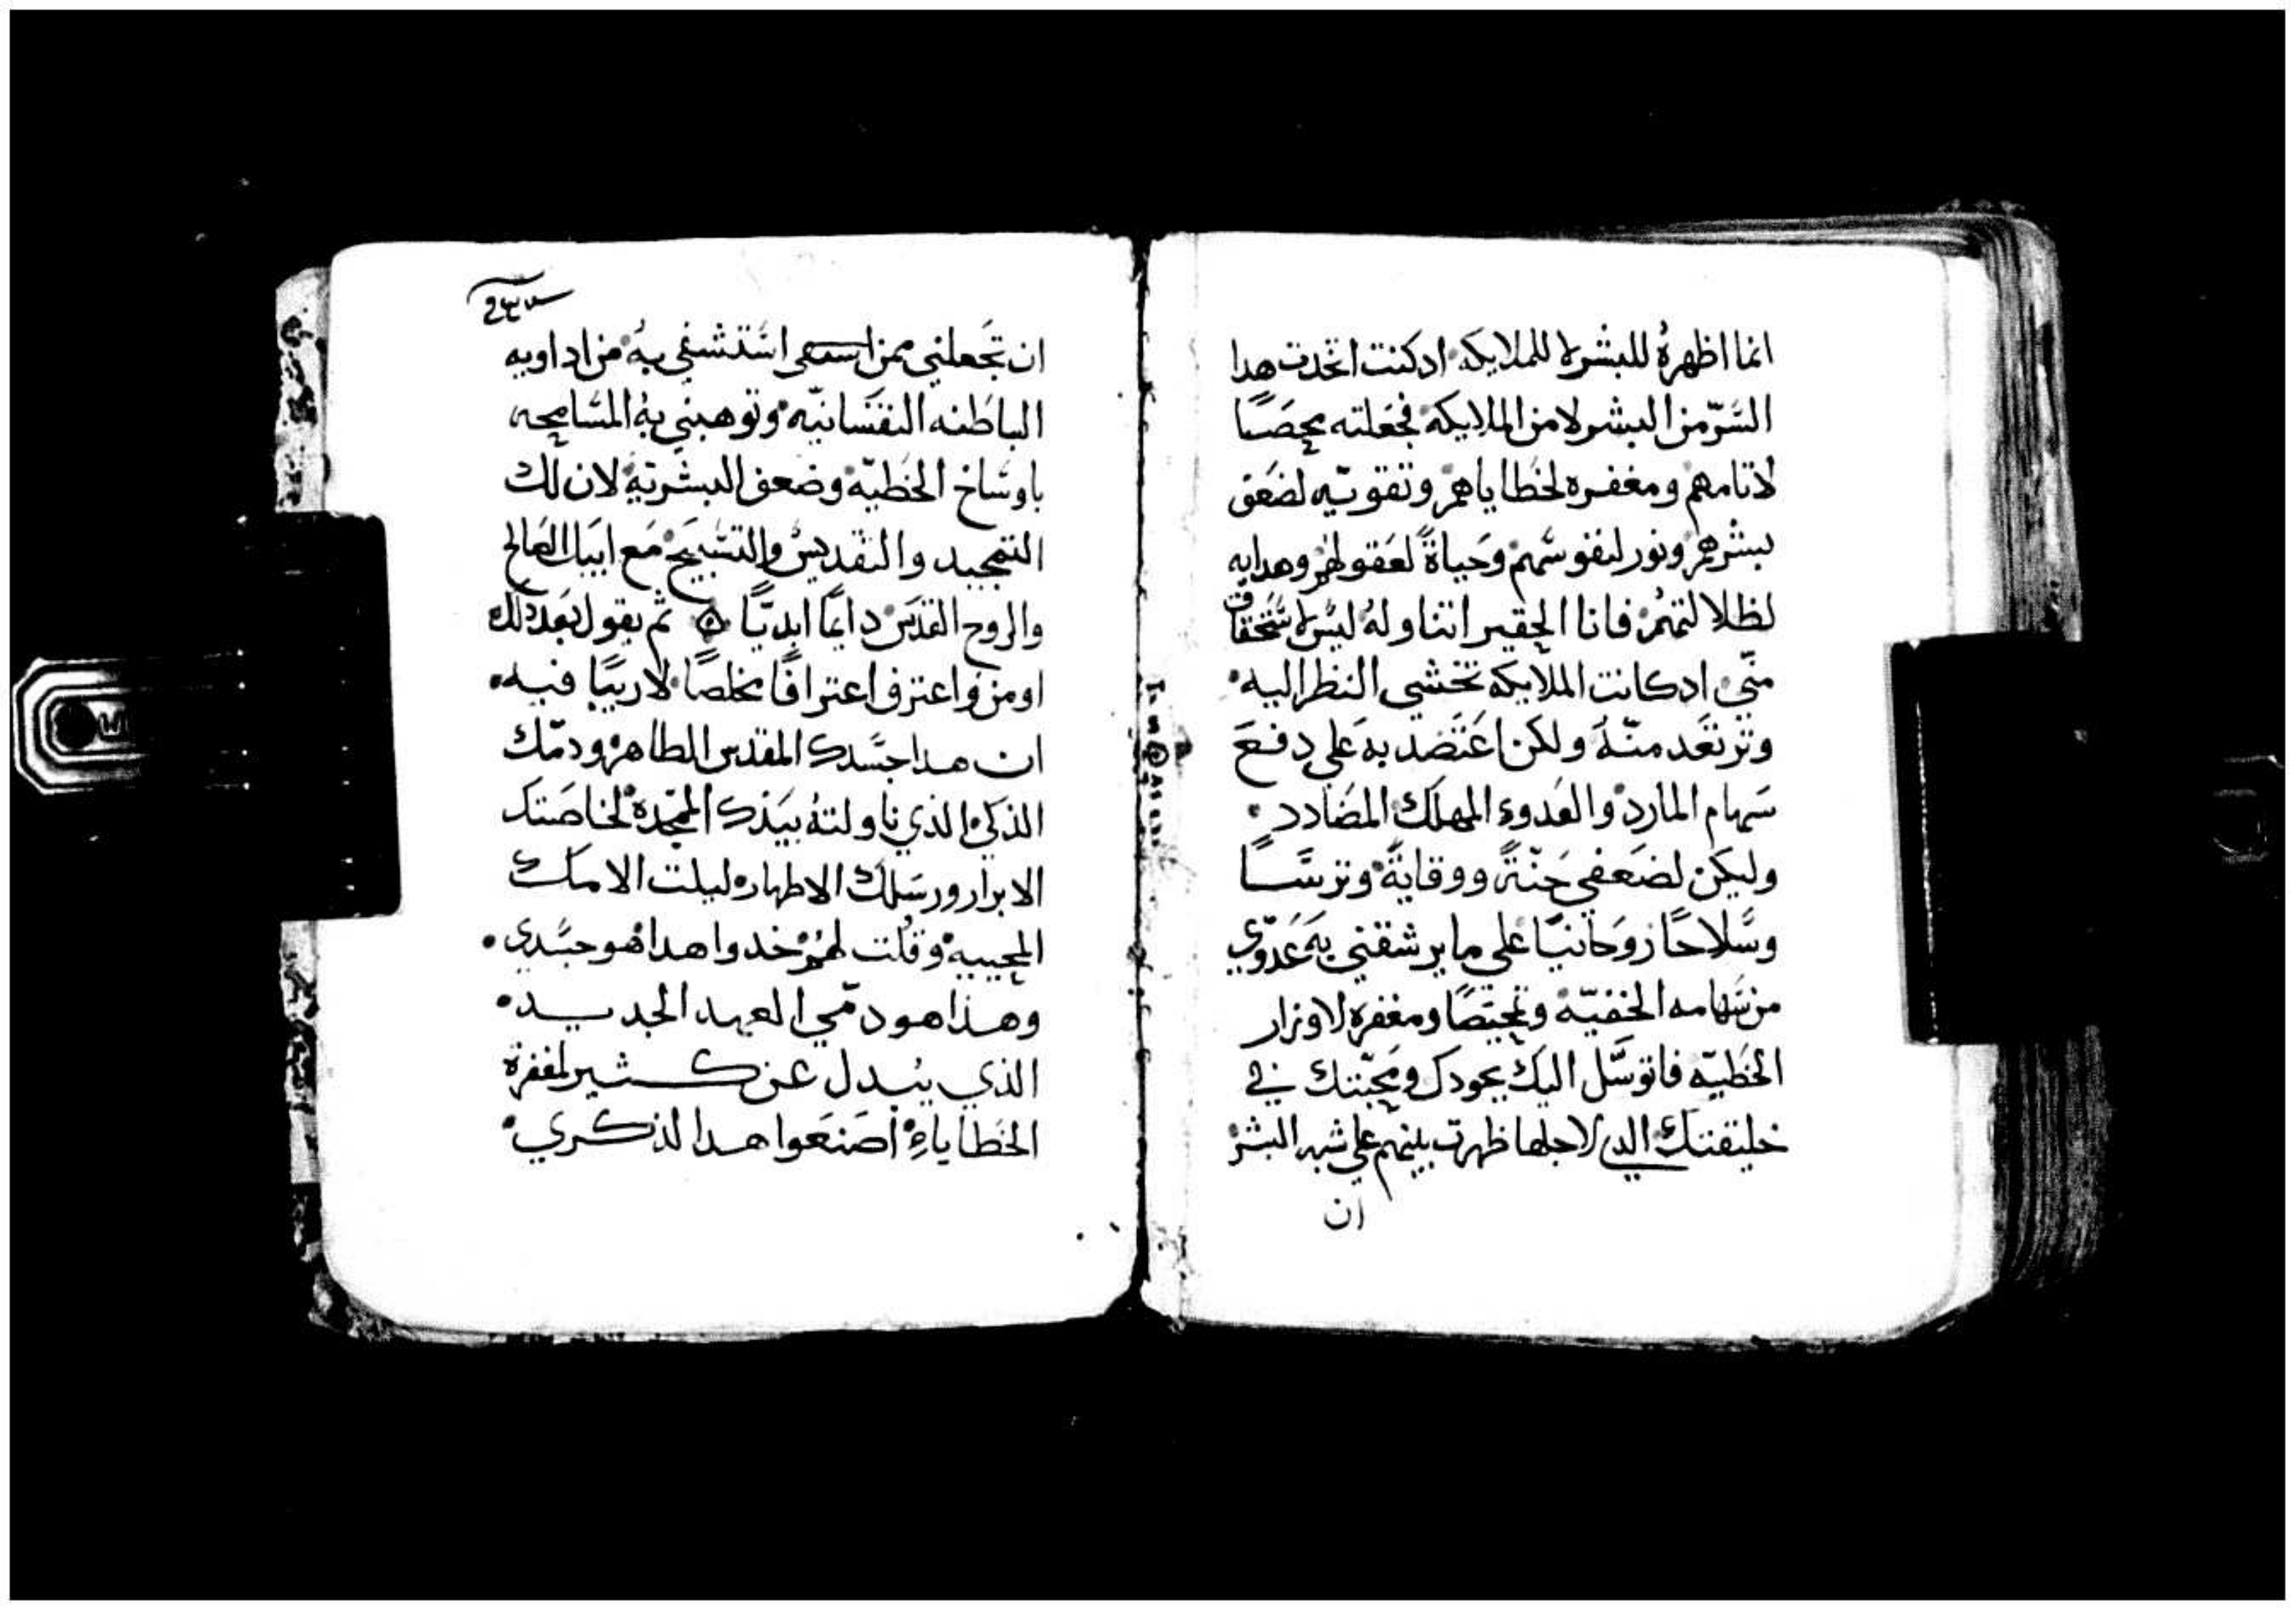 انما اظهرهُ للبشر لا للملايكه ادكنت اتخدت هدا
السَّرّ من البشر لا من الملايكه فجعلته محصَـًا
لاتامهم ومغفره لخطاياهم وتقويّه لضعف
بشرهم ونور لنفوسهم وحياةً لعقولهم وهدايه
لظلالتهم فانا الحقير اتناوله ليس لاستحقاق
منّي ادكانت الملايكه تخشي النظر اليه
وترتعد منّه ولكن اعتضد به علي دفع
سهام المارد والعدوء المهلك المضادد
وليكن لضعفي جنّةً ووقايةً وترسًـا
وسلاحًا روحانيًا علي ما يرشقني به عدوّي
من سهامه الخفيّه وتمحيصًا ومغفره لاوزار
الخطيّه فاتوسّل اليك بجودك ومحبّتك في
خليقتك الدي لاجلها ظهرت بينهم علي شبه البشر
ان
ان تجعلني ممن استشفي به من ادوايه
الباطنه النفسانيّه وتوهبني به المسامحه
باوساخ الخطيّه وضعف البشريه لان لك
التمجيد والتقديس والتسبيح مع ابيك الصالح
والروح القدس دايمًا ابديًّا ثم يقول بعد دلك
اومن واعترف اعترافًا مخلصًا لا ريبًا فيه
ان هدا جسدك المقدس الطاهر ودمّك
الذكي الذي ناولته بيدك الممجّدة لخاصتك
الابرار ورسلك الاطهار ليلت الامك
المحييه وقلت لهم خدوا هدا هو جسدي
وهذا هو دمّي العهد الجديد
الذي يبدل عن كثير لمغفرة
الخطاياء اصنعوا هدا لذكري